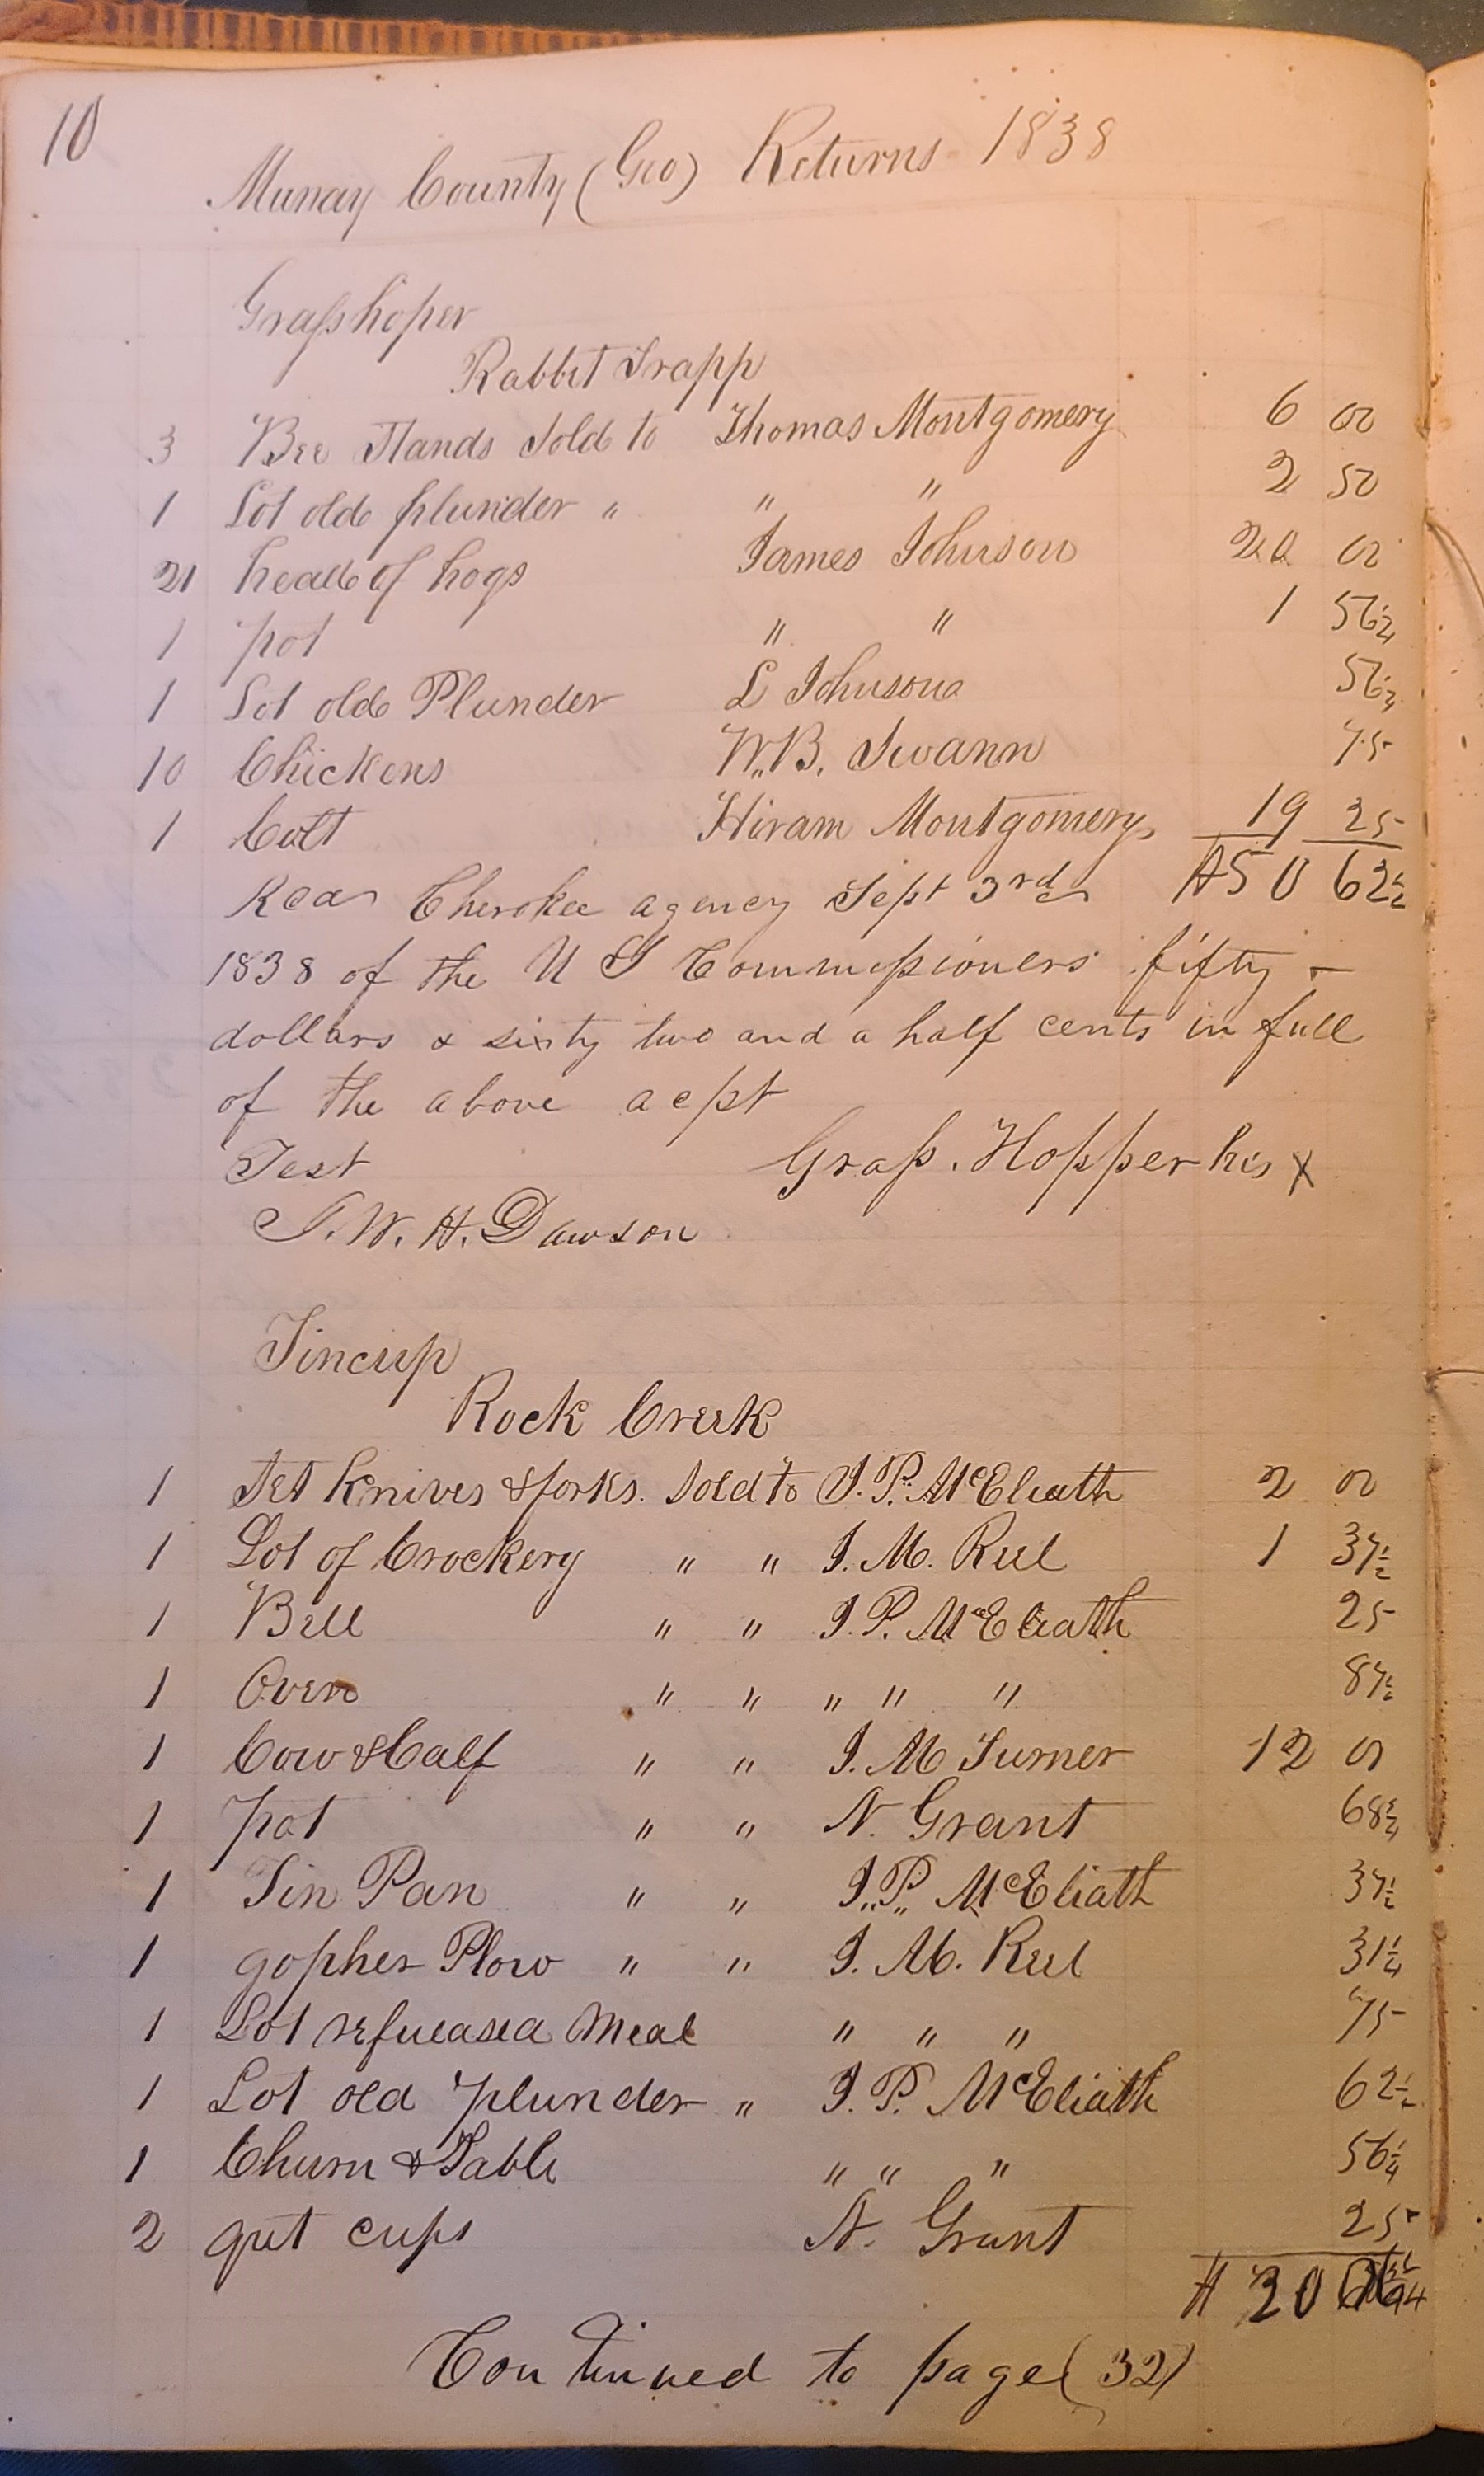 10
Murray County (Geo) Returns 1838
Grasshoper
Rabbit Trapp
3 Bee Stands Sold to Thomas Montgomery 6 00
1 Lot old plunder " " " 2 50
21 head of hogs James Johnson 20 00
1 pot " " 1 56¼
1 Lot old Plunder L Johnson 56¼
10 Chickens W.B. Swann 75
1 Colt Hiram Montgomery 19 25
Recd Cherokee agency Sept 3rd $50 62½
1838 of the U S Commissioners fifty
dollars & sixty two and a half cents in full
of the above acpt
Test Grass. Hopper his X
T. W. H. Dawson
Tincup
Rock Creek
1 Set Knives & forks. Sold to J. P. McEliath 2 00
1 Lot of Crockery " " J. M. Reel 1 37½
1 Bell " " J. P. McEliath 25
1 Oven " " " " " 87½
1 Cow & Calf " " J. M Turner 12 00
1 pot " " N. Grant 68¾
1 Tin Pan " " J. P. McEliath 37½
1 gopher Plow " " J. M. Reel 31¼
1 Lot Meal " " " 75
1 Lot old plunder " J. P. McEliath 62½
1 Churn & Table " " " 56¼
2 cups N. Grant 25
$ 20
Continued to page (32)